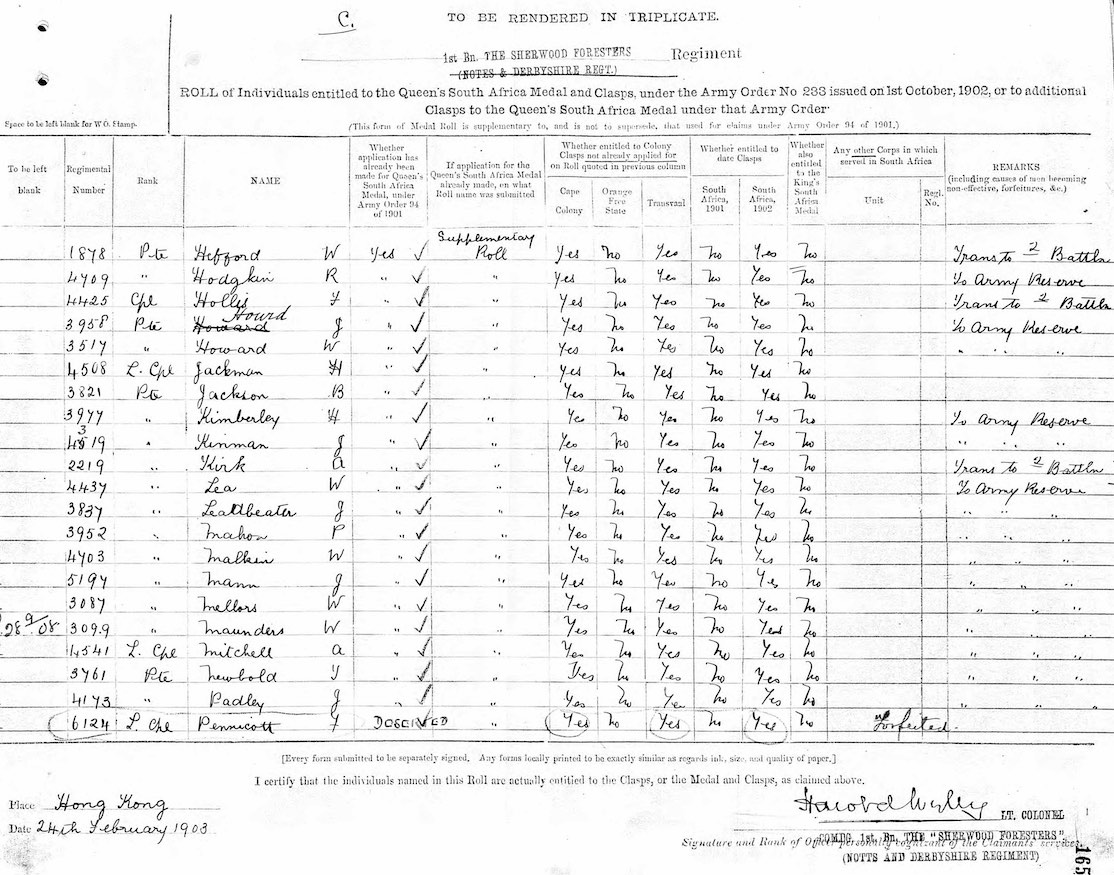 C.
TO BE RENDERED IN TRIPLICATE.
1st Bn. THE SHERWOOD FORESTERS Regiment
(NOTES & DERBYSHIRE REGT.)
ROLL of Individuals entitled to the Queen's South Africa Medal and Clasps, under the Army Order No 233 issued on 1st October, 1902, or to additional
Clasps to the Queen's South Africa Medal under that Army Order·
Space to be left blank for W.O. Stamp.
(This form of Medal Roll is supplementary to, and is not to supersede, that used for claims under Army Order 94 of 1901.)
To be left blank | Regimental Number | Rank | NAME | Whether application has already been made for Queen's South Africa Medal, under Army Order 94 of 1901 | If application for the Queen's South Africa Medal already made, on what Roll name was submitted | Whether entitled to Colony Clasps not already applied for on Roll quoted in previous column | Whether entitled to date Clasps | Whether also entitled to the King's South Africa Medal | Any other Corps in which served in South Africa | REMARKS (including causes of men becoming non-effective, forfeitures, &c.)
Cape Colony | Orange Free State | Transvaal | South Africa, 1901 | South Africa, 1902 | Unit | Regl. No.
1878 Pte Hefford W Yes ✓ Supplementary Roll Yes No Yes No Yes No Trans to 2 Battln
4709 " Hodgkin R " ✓ " Yes No Yes No Yes No To Army Reserve
4425 Cpl Hollis F " ✓ " Yes No Yes No Yes No Trans to 2 Battln
3958 Pte Howard Hourd J " ✓ " Yes No Yes No Yes No To Army Reserve
3517 " Howard W " ✓ " Yes No Yes No Yes No " " "
4508 L. Cpl Jackman H " ✓ " Yes No Yes No Yes No
3821 Pte Jackson B " ✓ " Yes No Yes No Yes No
3977 " Kimberley H " ✓ " Yes No Yes No Yes No To Army Reserve
3
4519 " Kinman J " ✓ " Yes No Yes No Yes No " " "
2219 " Kirk A " ✓ " Yes No Yes No Yes No Trans to 2 Battln
4437 " Lea W " ✓ " Yes No Yes No Yes No To Army Reserve
3837 " Leadbeater J " ✓ " Yes No Yes No Yes No " " "
3952 " Mahon P " ✓ " Yes No Yes No Yes No " " "
4703 " Malkin W " ✓ " Yes No Yes No Yes No " " "
5194 " Mann J " ✓ " Yes No Yes No Yes No " " "
3087 " Mellors W " ✓ " Yes No Yes No Yes No " " "
28/9/08 3099 " Maunders W " ✓ " Yes No Yes No Yes No " " "
4541 L. Cpl Mitchell A " ✓ " Yes No Yes No Yes No " " "
3761 Pte Newbold T " ✓ " Yes No Yes No Yes No " " "
4173 " Padley J " ✓ " Yes No Yes No Yes No " " "
6124 L. Cpl Pennicott F ✓ " Yes No Yes No Yes No Forfeited.
[Every form submitted to be separately signed. Any forms locally printed to be exactly similar as regards ink, size, and quality of paper.]
I certify that the individuals named in this Roll are actually entitled to the Clasps, or the Medal and Clasps, as claimed above.
Place Hong Kong
Date 24th February 1903
LT. COLONEL
COMDG. 1st. Bn. THE "SHERWOOD FORESTERS"
Signature and Rank of Officer personally cognizant of the Claimants' services.
(NOTTS AND DERBYSHIRE REGIMENT)
165